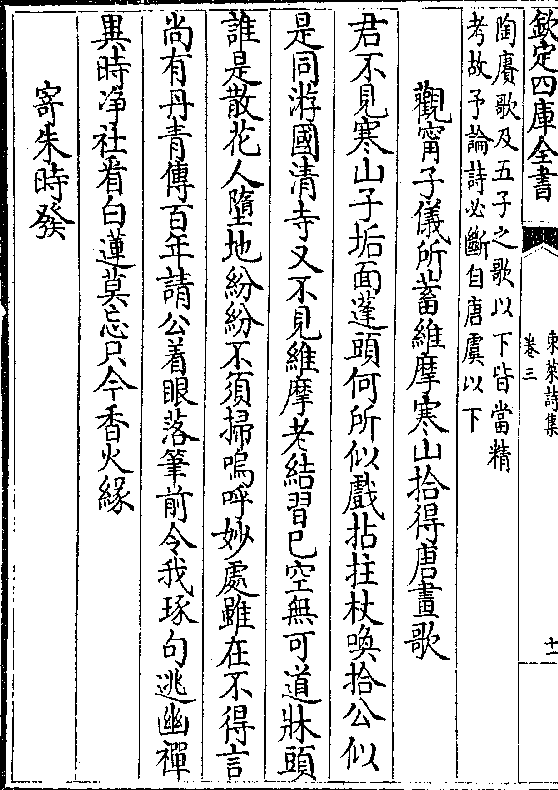 欽定四庫全書
東萊詩集
卷三
十一
陶賡歌及五子之歌以下皆當精
考故予論詩必斷自唐虞以下
觀甯子儀所蓄維摩寒山拾得唐畫歌
君不見寒山子垢面蓬頭何所似戲拈拄杖喚拾公似
是同游國清寺又不見維摩老結習已空無可道牀頭
誰是散花人墮地紛紛不須掃嗚呼妙處雖在不得言
尚有丹青傳百年請公着眼落筆前令我琢句逃幽禪
異時净社看白蓮莫忘只今香火緣
寄朱時發